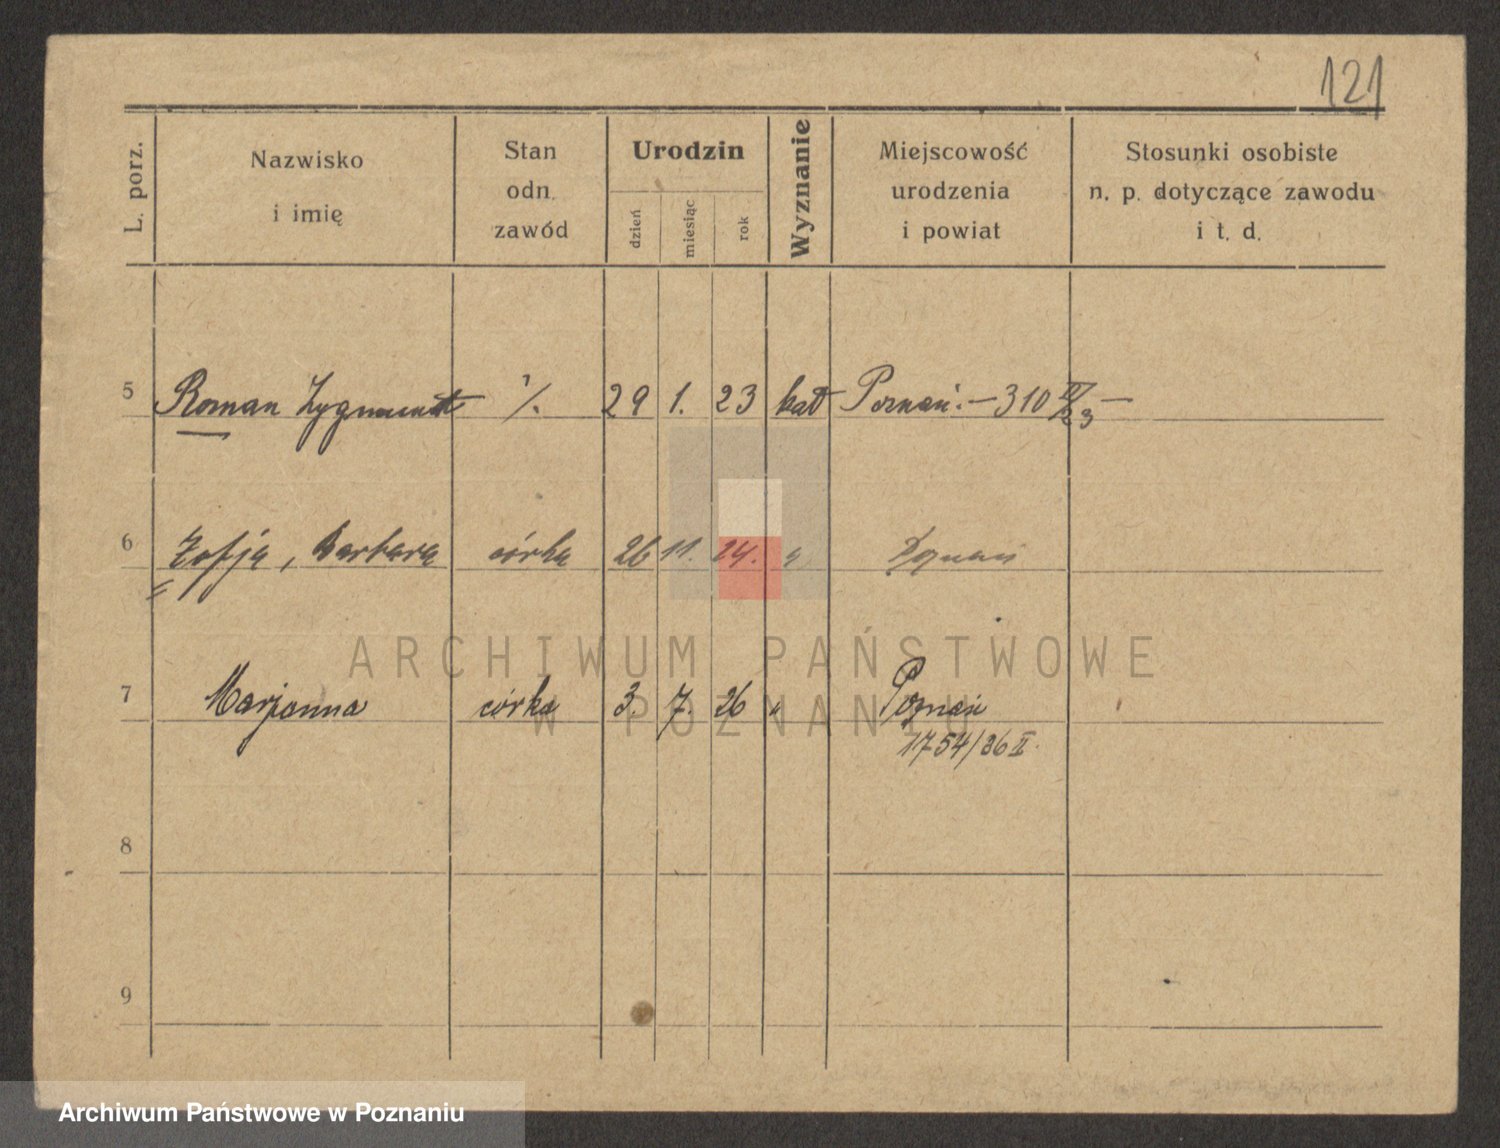 121
L. porz.
Nazwisko
i imię
Stan
odn.
zawód
Urodzin
dzień
miesiąc
rok
Wyznanie
Miejscowość
urodzenia
i powiat
Stosunki osobiste
n. p. dotyczące zawodu
i t. d.
5 Roman Zygmunt 29 1. 23 kat Poznań. — 310 —
6 Zofja, Barbara córka 26 11. 24. " Poznań
7 Marjanna córka 3. 7. 26 " Poznań
1754/26 II.
8
9
ARCHIWUM PAŃSTWOWE
W POZNANIU
Archiwum Państwowe w Poznaniu